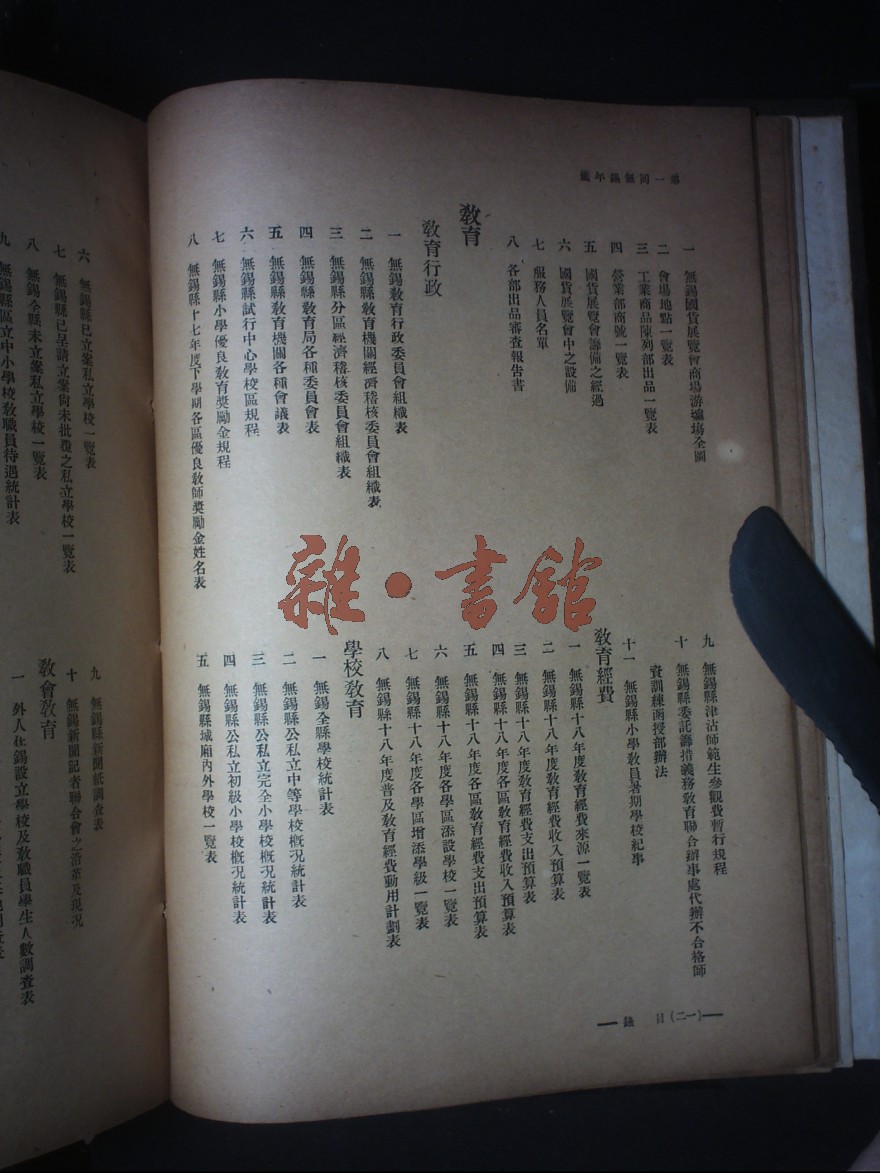 第一回無錫年鑑
一 無錫國貨展覽會商場游壚場全圖
二 會場地點一覽表
三 工業商品陳列部出品一覽表
四 營業部商號一覽表
五 國貨展覽會籌備之經過
六 國貨展覽會中之設備
七 服務人員名單
八 各部出品審查報告書
教育
教育行政
一 無錫教育行政委員會組織表
二 無錫縣教育機關經濟稽核委員會組織表
三 無錫縣分區經濟稽核委員會組織表
四 無錫縣教育局各種委員會表
五 無錫縣教育機關各種會議表
六 無錫縣試行中心學校區規程
七 無錫縣小學優良教育獎勵金規程
八 無錫縣十七年度下學期各區優良教師獎勵金姓名表
九 無錫縣津沽師範生參觀費暫行規程
十 無錫縣委託籌措義務教育聯合辦事處代辦不合格師
資訓練函授部辦法
十一 無錫縣小學教員暑期學校紀事
教育經費
一 無錫縣十八年度教育經費來源一覽表
二 無錫縣十八年度教育經費收入預算表
三 無錫縣十八年度教育經費支出預算表
四 無錫縣十八年度各區教育經費收入預算表
五 無錫縣十八年度各區教育經費支出預算表
六 無錫縣十八年度各學區添設學校一覽表
七 無錫縣十八年度各學區增添學級一覽表
八 無錫縣十八年度普及教育經費動用計劃表
學校教育
一 無錫全縣學校統計表
二 無錫縣公私立中等學校概况統計表
三 無錫縣公私立完全小學校概况統計表
四 無錫縣公私立初級小學校概况統計表
五 無錫縣城廂內外學校一覽表
目(二一)
錄
六 無錫縣已立案私立學校一覽表
七 無錫縣已呈請立案尙未批復之私立學校一覽表
八 無錫全縣未立案私立學校一覽表
九 無錫縣區立中小學校教職員待遇統計表
九 無錫縣新聞紙調查表
十 無錫新聞記者聯合會之沿革及現况
教會教育
一 外人在錫設立學校及教職員學生人數調查表
雜·書館